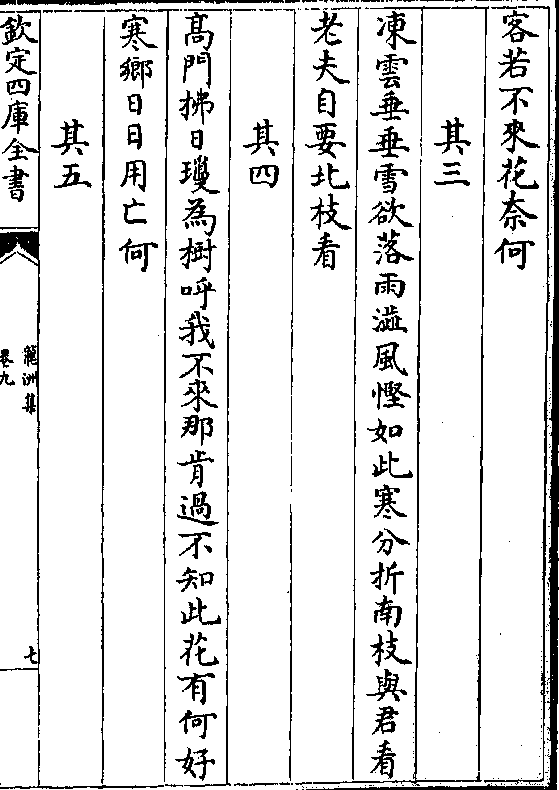 客若不來花奈何
其三
凍雲垂垂雪欲落雨澁風慳如此寒分折南枝與君看
老夫自要北枝看
其四
髙門拂日瓊為樹呼我不來那肯過不知此花有何好
寒鄉日日用亡何
其五
欽定四庫全書
蘆洲集
卷九
七